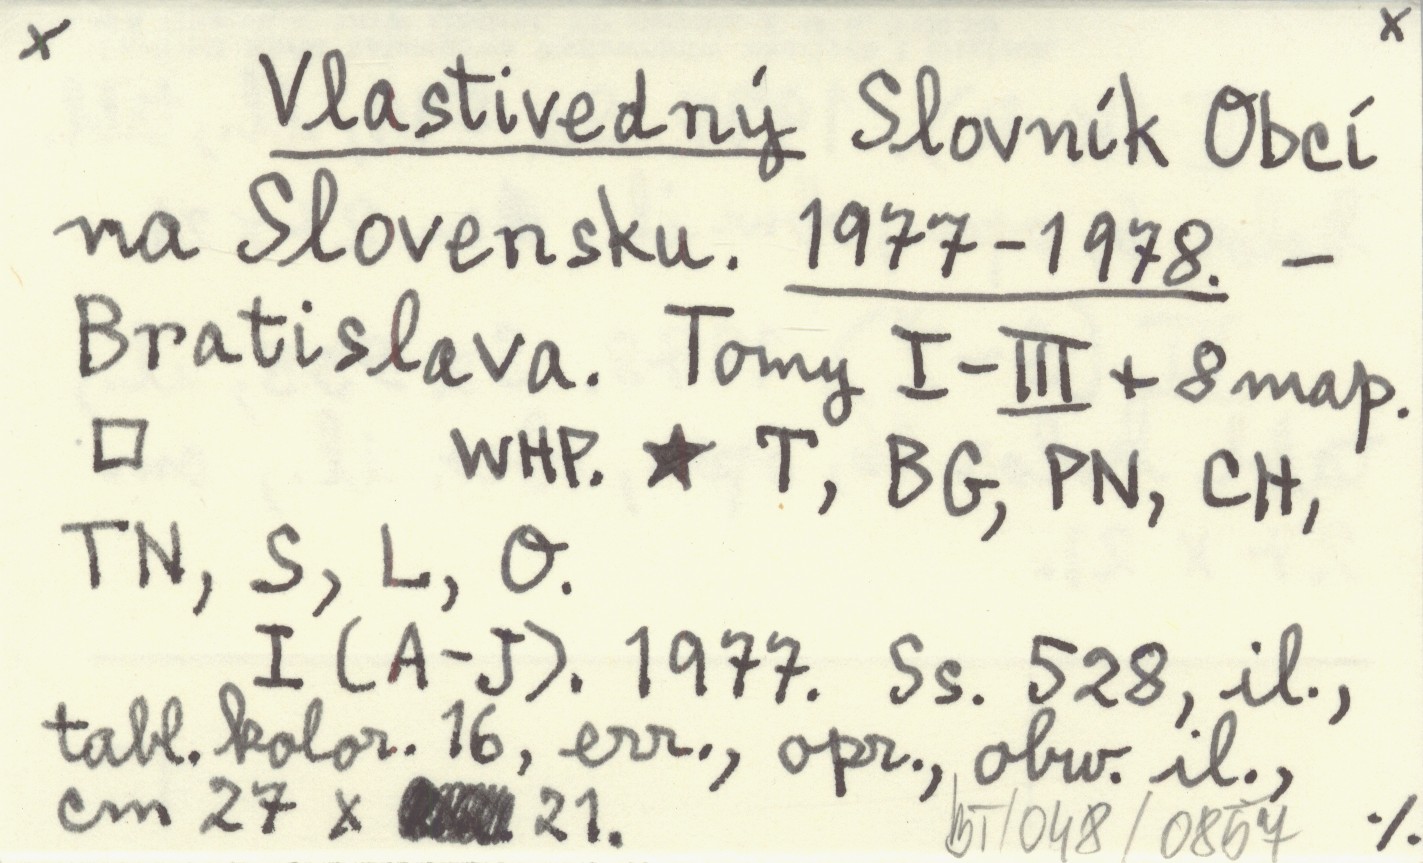 x x
Vlastivedný Slovník Obcí
na Slovensku. 1977-1978. -
Bratislava. Tomy I-III + 8 map.
□ WHP. ★ T, BG, PN, CH,
TN, S, L, O.
I (A-J). 1977. Ss. 528, il.,
tabl. kolor. 16, err., opr., obw. il.,
cm 27 x 21.
/048/0857 ·/.